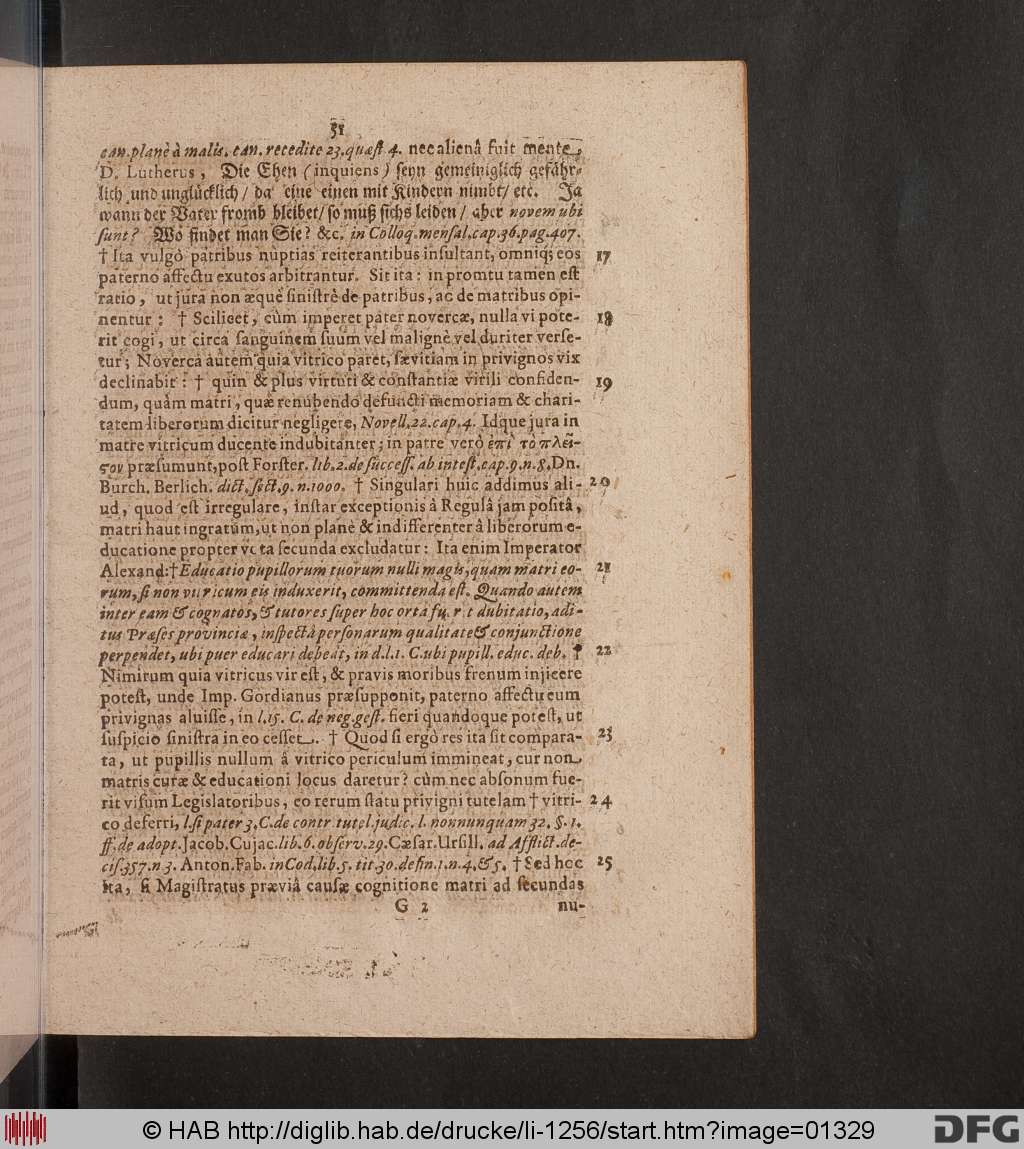 51
can. planè à malis. can. recedite 23. quæst 4. nec alienâ fuit mente
D. Lutherus, Die Ehen (inquiens) seyn gemeiniglich gefähr-
lich und unglücklich/ da eine einen mit Kindern nimbt/ etc. Ja
wann der Vater fromb bleibet/ so muß sichs leiden/ aber novem ubi
sunt? Wo findet man Sie? &c. in Colloq. mensal. cap. 36. pag. 407.
† Ita vulgò patribus nuptias reiterantibus insultant, omniq; eos 17
paterno affectu exutos arbitrantur. Sit ita: in promtu tamen est
ratio, ut jura non æquè sinistrè de patribus, ac de matribus opi-
nentur: † Scilicet, cùm imperet pater novercæ, nulla vi pote- 18
rit cogi, ut circa sanguinem suum vel malignè vel duriter verse-
tur; Noverca autem quia vitrico paret, sævitiam in privignos vix
declinabit: † quin & plus virtuti & constantiæ virili confiden- 19
dum, quàm matri, quæ renubendo defuncti memoriam & chari-
tatem liberorum dicitur negligere, Novell. 22. cap. 4. Idque jura in
matre vitricum ducente indubitanter; in patre verò ἐπὶ τὸ πλεῖ-
ϛον præsumunt, post Forster. lib. 2. de success. ab intest. cap. 9. n. 8. Dn.
Burch. Berlich. dict. sect. 9. n. 1000. † Singulari huic addimus ali- 20
ud, quod est irregulare, instar exceptionis à Regulâ jam positâ,
matri haut ingratum, ut non planè & indifferenter â liberorum e-
ducatione propter vota secunda excludatur: Ita enim Imperator
Alexand: † Educatio pupillorum tuorum nulli magis, quam matri eo- 21
rum, si non vitricum eis induxerit, committenda est. Quando autem
inter eam & cognatos, & tutores super hoc orta fu.r.t dubitatio, adi-
tus Præses provinciæ, inspectâ personarum qualitate & conjunctione
perpendet, ubi puer educari debeat, in d. l. 1. C. ubi pupill. educ. deb. † 22
Nimirum quia vitricus vir est, & pravis moribus frenum injicere
potest, unde Imp. Gordianus præsupponit, paterno affectu eum
privignas aluisse, in l. 15. C. de neg. gest. fieri quandoque potest, ut
suspicio sinistra in eo cesset. † Quod si ergò res ita sit compara- 23
ta, ut pupillis nullum â vitrico periculum immineat, cur non
matris curæ & educationi locus daretur? cùm nec absonum fue-
rit visum Legislatoribus, eo rerum statu privigni tutelam † vitri- 24
co deferri, l. si pater 3. C. de contr. tutel. judic. l. nonnunquam 32. §. 1.
ff. de adopt. Jacob. Cujac. lib. 6. observ. 29. Cæsar. Ursill. ad Afflict. de-
cis. 357. n 3. Anton. Fab. in Cod. lib. 5. tit. 30. defin. 1. n. 4. & 5. † Sed hoc 25
ita, si Magistratus præviâ causæ cognitione matri ad secundas
G 2 nu-
© HAB http://diglib.hab.de/drucke/li-1256/start.htm?image=01329
DFG